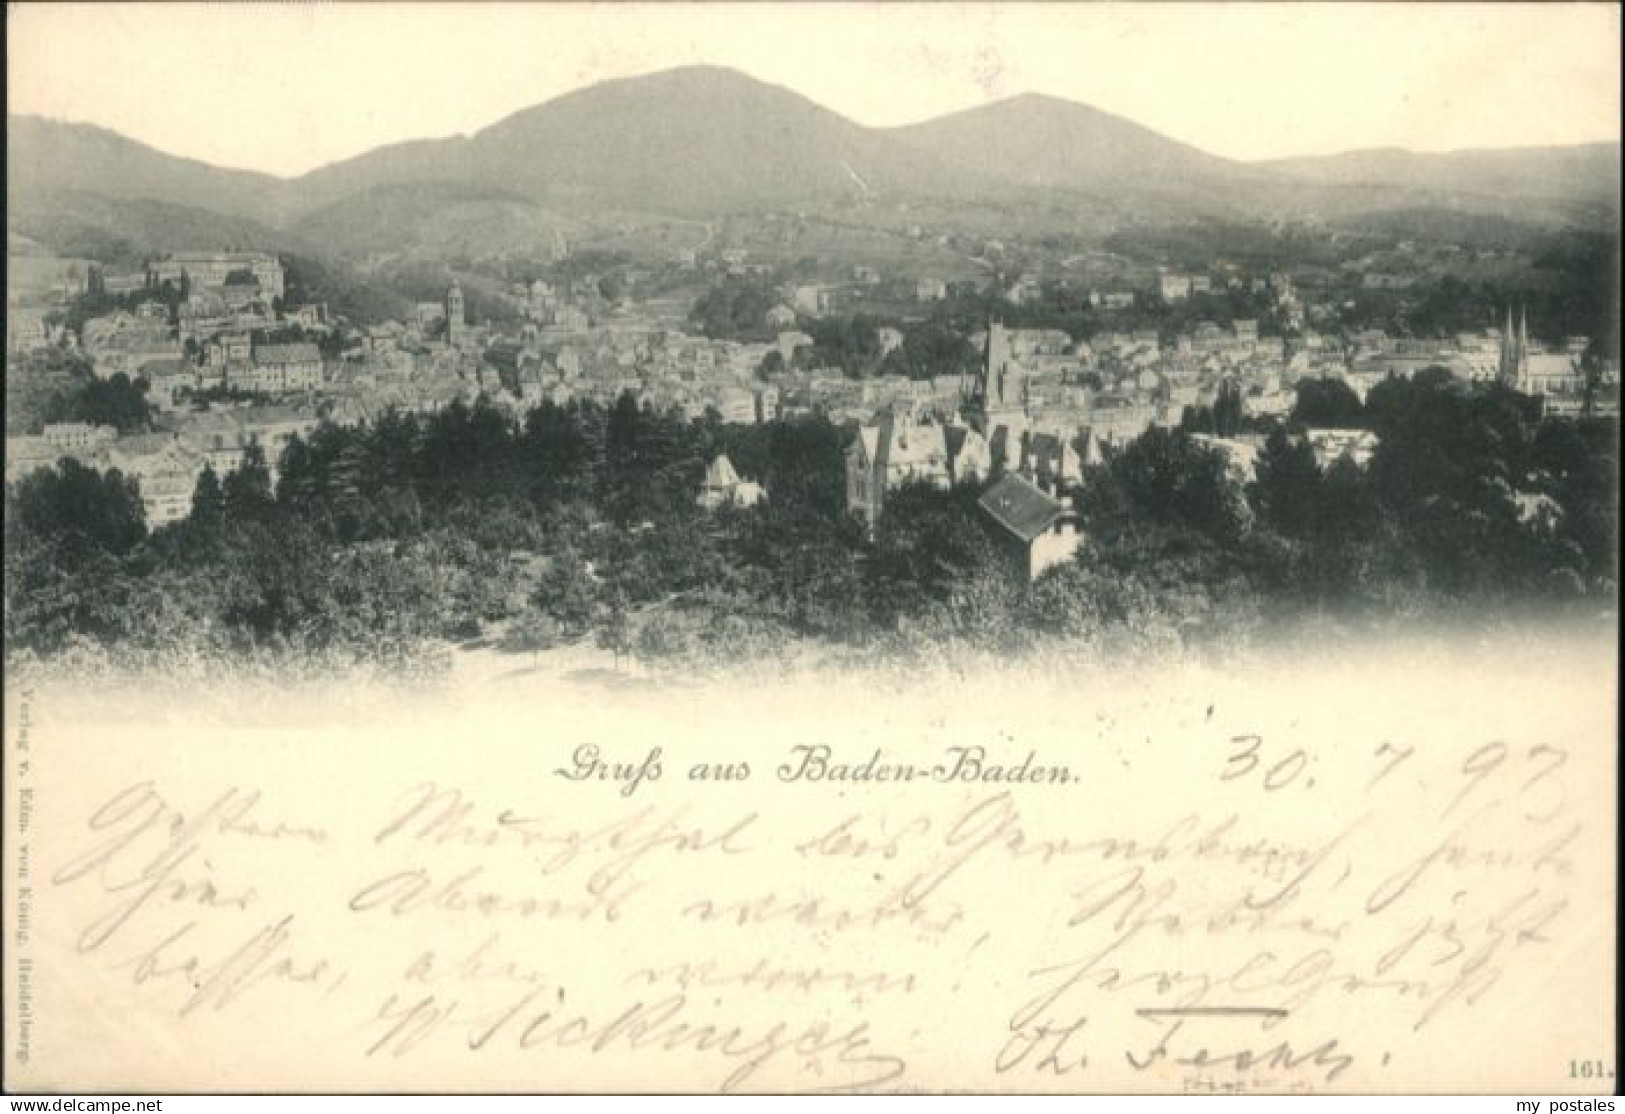 Gruß aus Baden-Baden.
30. 7 97
Gestern Murgthal bis Gernsbach, heute
hier Abends weiter, Wetter jetzt
besser, aber warm! Herzl Gruß
W Sickinger Th.
Verlag v. Edm. von König, Heidelberg.
161.
my postales